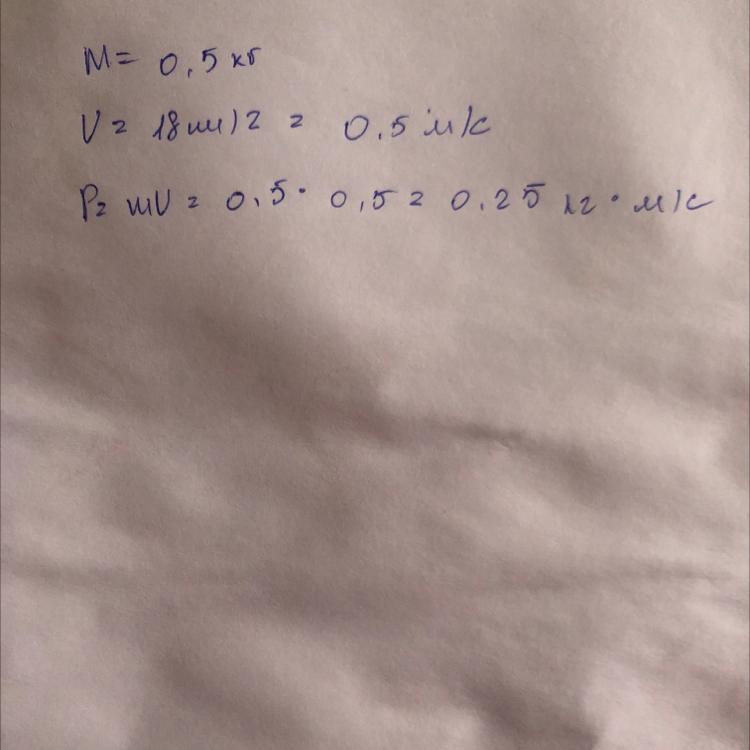 M = 0,5 кг
V = 18 км/г = 0.5 м/с
P = mV = 0,5 · 0,5 = 0.25 кг · м/с